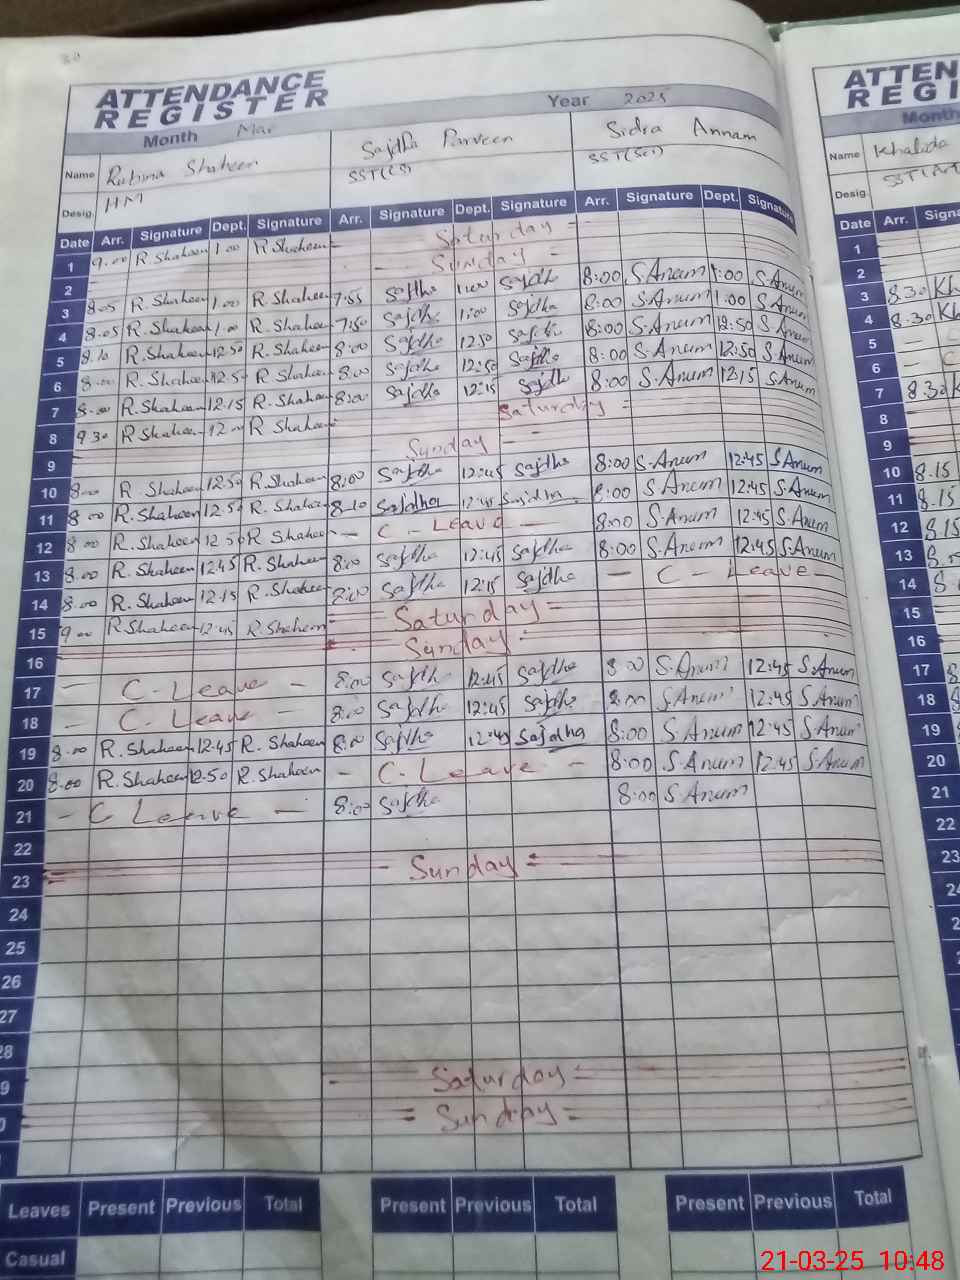 ATTENDANCE REGISTER
Month Mar Year 2025
Name Rubina Shaheen Sajdha Parveen Sidra Annam
Desig. HM SST(CS) SST(Sci)
Date Arr. Signature Dept. Signature Arr. Signature Dept. Signature Arr. Signature Dept. Signature
1 9.00 R Shaheen 1.00 R Shaheen = Saturday =
2 - Sunday -
3 8.05 R.Shaheen 1.00 R.Shaheen 7:55 Sajdha 1:00 Sajdha 8:00 S.Anum 1:00 S.Anum
4 8.05 R.Shaheen 1.00 R.Shaheen 7:50 Sajdha 1:00 Sajdha 8:00 S.Anum 1:00 S.Anum
5 8.10 R.Shaheen 12.50 R.Shaheen 8:00 Sajdha 12:50 Sajdha 8:00 S.Anum 12:50 S.Anum
6 8.00 R.Shaheen 12.50 R.Shaheen 8:00 Sajdha 12:50 Sajdha 8:00 S.Anum 12:50 S.Anum
7 8.00 R.Shaheen 12.15 R.Shaheen 8:00 Sajdha 12:15 Sajdha 8:00 S.Anum 12:15 S.Anum
8 9.30 R Shaheen R Shaheen Saturday =
9 Sunday -
10 8.00 R.Shaheen 12.50 R.Shaheen 8:00 Sajdha 12:45 Sajdha 8:00 S.Anum 12:45 S.Anum
11 8.00 R.Shaheen 12.50 R.Shaheen 8:10 Sajdha 12:45 Sajdha 8:00 S.Anum 12:45 S.Anum
12 8.00 R.Shaheen 12.50 R Shaheen - C - Leave - 8:00 S.Anum 12:45 S.Anum
13 8.00 R.Shaheen 12.45 R.Shaheen 8:00 Sajdha 12:45 Sajdha 8:00 S.Anum 12:45 S.Anum
14 8.00 R.Shaheen 12.15 R.Shaheen 8:00 Sajdha 12:15 Sajdha - C - Leave
15 9.00 R Shaheen 12.45 R.Shaheen = Saturday =
16 Sunday -
17 - C - Leave - 8:00 Sajdha 12:45 Sajdha 8:00 S.Anum 12:45 S.Anum
18 - C - Leave - 8:00 Sajdha 12:45 Sajdha 8:00 S.Anum 12:45 S.Anum
19 8.00 R.Shaheen 12.45 R.Shaheen 8:00 Sajdha 12:45 Sajdha 8:00 S.Anum 12:45 S.Anum
20 8.00 R.Shaheen 12.50 R.Shaheen - C. Leave - 8:00 S.Anum 12:45 S.Anum
21 - C Leave - 8:00 Sajdha 8:00 S.Anum
22
23 - Sunday =
24
25
26
27
28
9 Saturday =
0 = Sunday =
Leaves Present Previous Total Present Previous Total Present Previous Total
Casual
ATTEN
REGI
Month
Name Khalida
Desig. SST(Art
Date Arr. Signa
1
2
3 8.30 Kh
4 8.30 Kh
5
6
7 8.30 K
8
9
10 8.15
11 8.15
12 8.15
13
14
15
16
17
18
19
20
21
22
23
21-03-25 10:48